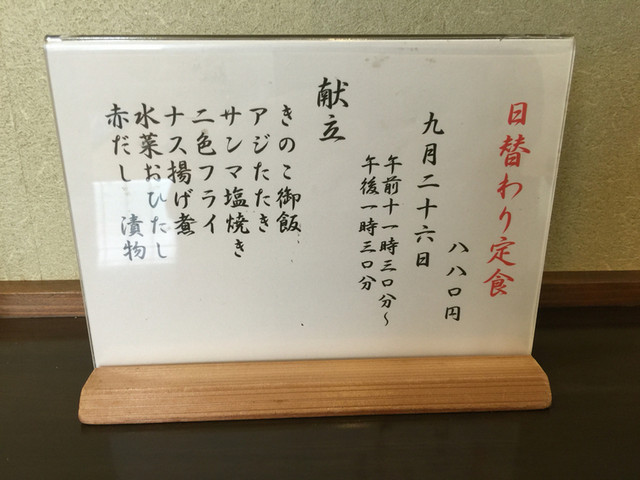 日替わり定食
八八〇円
九月二十六日
午前十一時三〇分～
午後一時三〇分
献立
きのこ御飯
アジたたき
サンマ塩焼き
二色フライ
ナス揚げ煮
水菜おひたし
赤だし　漬物